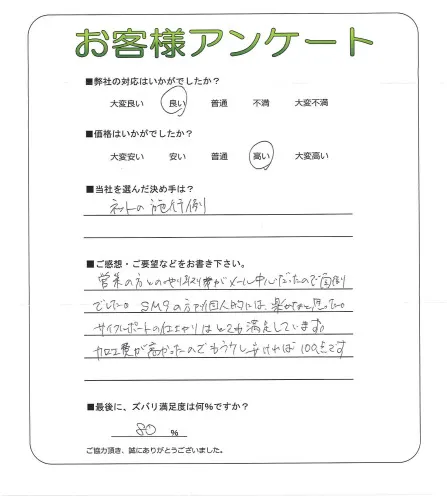 お客様アンケート
■弊社の対応はいかがでしたか?
大変良い 良い 普通 不満 大変不満
■価格はいかがでしたか?
大変安い 安い 普通 高い 大変高い
■当社を選んだ決め手は?
ネットの施行例
■ご感想・ご要望などをお書き下さい。
営業の方とのやり取りがメール中心だったので面倒
でした。SMSの方が個人的には、楽かなと思った。
サイクルポートの仕上がりはとても満足しています。
加工費が高かったのでもう少し安ければ100点です
■最後に、ズバリ満足度は何%ですか?
80 %
ご協力頂き、誠にありがとうございました。